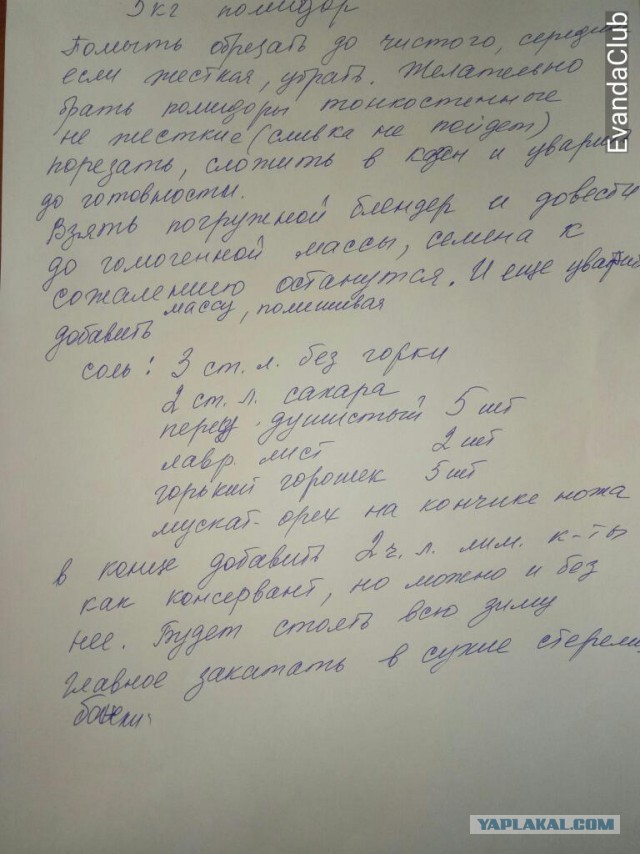 5кг помидор
Помыть обрезать до чистого, середину
если жесткая, убрать. Желательно
брать помидоры тонкостенные
не жесткие (сливка не пойдет)
порезать, сложить в и уварить
до готовности.
Взять погружной блендер и довести
до гомогенной массы, семена к
сожалению останутся. И еще
добавить массу, помешивая
соль: 3 ст. л. без горки
2 ст. л. сахара
перец душистый 5 шт
лавр. лист 2 шт
горький горошек 5 шт
мускат. орех на кончике ножа
в конце добавить 2 ч. л. лим. к-ты
как консервант, но можно и без
нее. Будет стоять всю зиму
главное закатать в сухие стерели
банки
EvandaClub
YAPLAKAL.COM